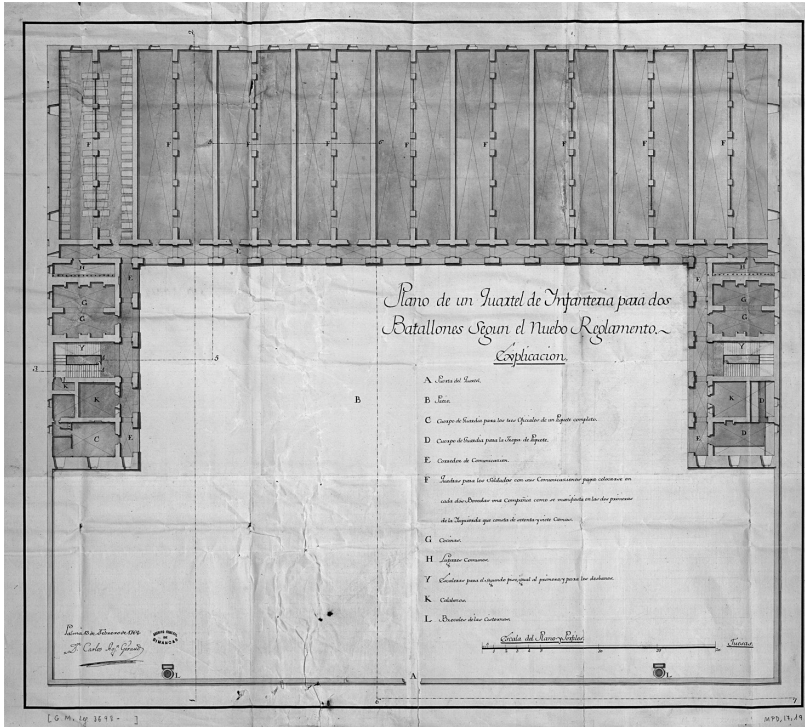 Plano de un Quartel de Infanteria para dos
Batallones Segun el Nuebo Reglamento.
Explicacion.
A Puerta del Quartel.
B Patio.
C Cuerpo de Guardia para los tres Oficiales de un Piquete completo.
D Cuerpo de Guardia para la Tropa de Piquete.
E Corredor de Comunicacion.
F Quadras para los Soldados con sus Comunicaciones para colocarse en
cada dos Bovedas una Compañia como se manifiesta en las dos primeras
de la Izquierda que consta de setenta y siete Camas.
G Cocinas.
H Lugares Comunes.
Y Escaleras para el segundo piso igual al primero y para los
K Calabozos.
L Brocales de las Cisternas.
Escala del Plano y Perfiles.
Tuesas.
Palma 13 de Febrero de
Dn. Carlos
ARCHIVO GENERAL
DE
SIMANCAS
F F F F F F F F F
E E
H H
E E
G G
G G
Y Y
3 5
K K
K D
C E E D
B
2
5 6
L A L
1
4
[G.M., leg 3698 - ]
MPD, 17, 19